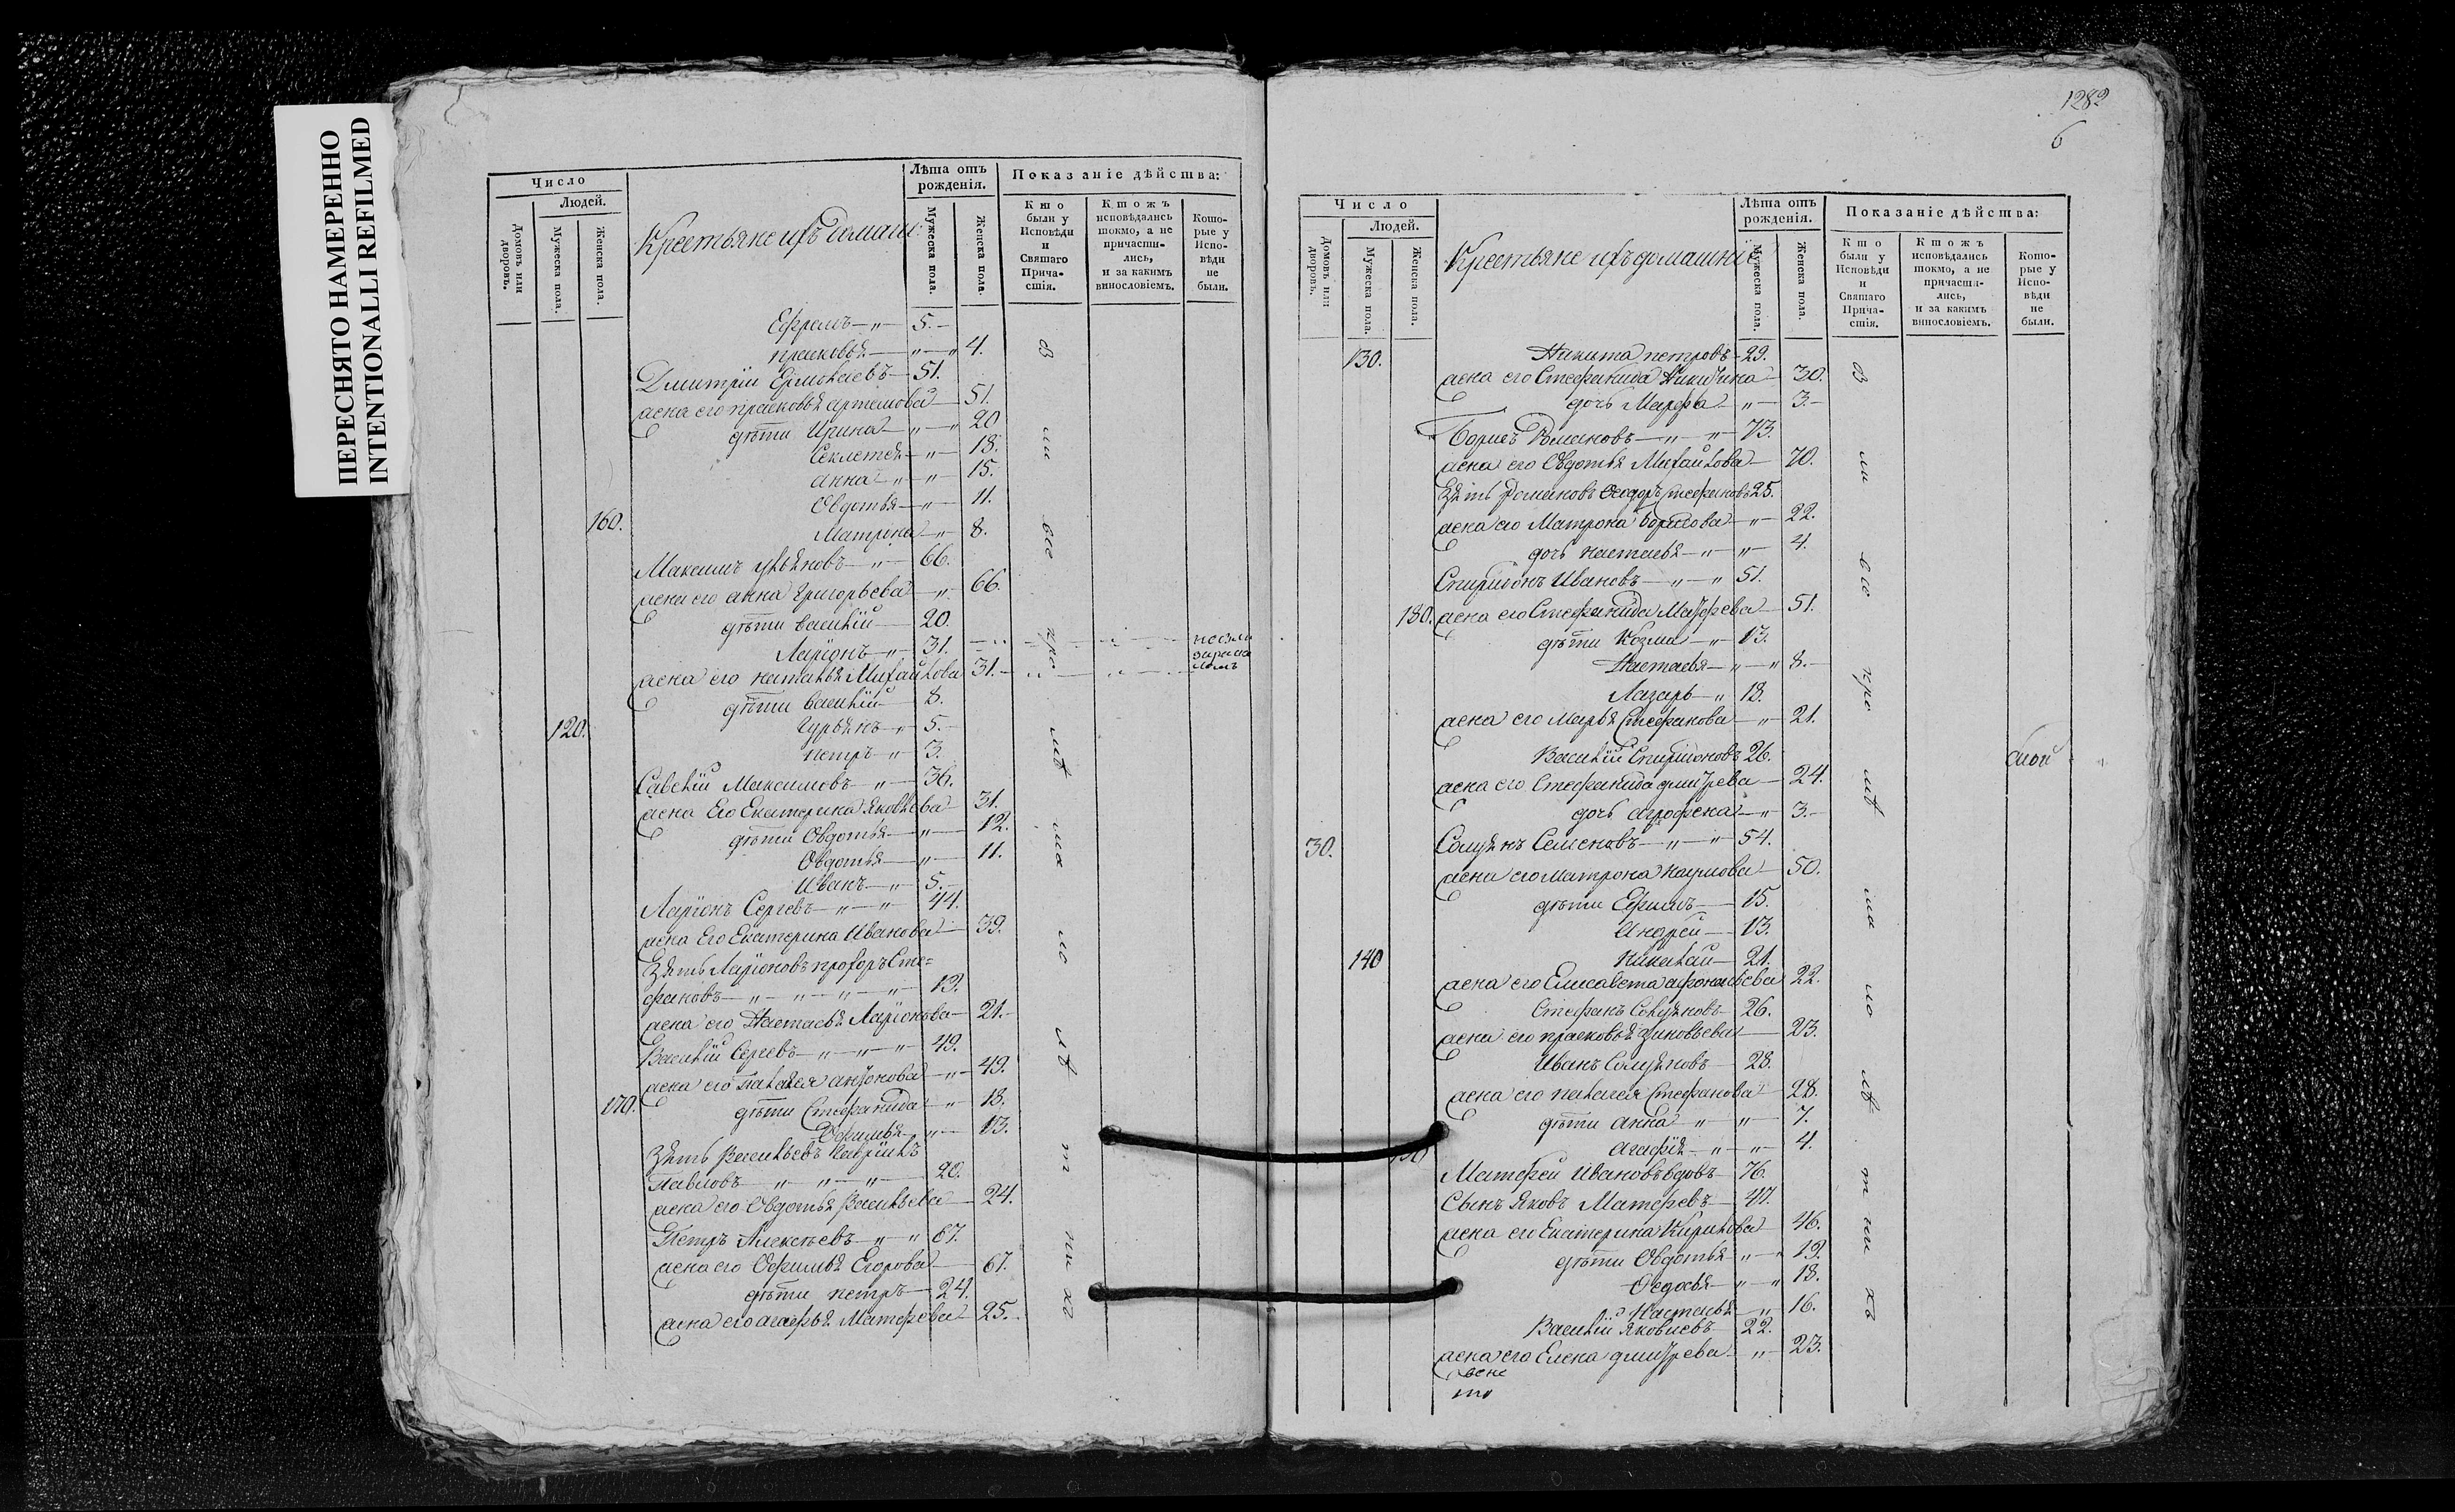 ПЕРЕСНЯТО НАМЕРЕННО
INTENTIONALLI REFILMED
Число
Людей.
Домовъ или дворовъ.
Мужеска пола.
Женска пола.
Крестьяне ихъ домаш:
Лѣта отъ рожденія.
Мужеска пола.
Женска пола.
Показаніе дѣйства:
Кто были у Исповѣди и Святаго Причастія.
Ктожъ исповѣдались токмо, а не причастились, и за какимъ винословіемъ.
Которые у Исповѣди не были.
Ефремъ 5.
Прасковья 4.
Дмитрій Ермолаевъ 51.
жена его прасковья артемова 51.
дѣти Ирина 20
Секлетея 18.
анна 15.
Овдотья 11.
160. Матрона 8.
Максимъ улъяновъ 66.
жена его анна Григорьева 66.
дѣти василій 20.
Ларіонъ 31.
жена его наталья Михайлова 31.
дѣти василій 8.
120. Гурьянъ 5.
петръ 3.
Савелій Максимовъ 36.
жена Его Екатерина Яковлева 31.
дѣти Овдотья 12.
Овдотья 11.
Иванъ 5.
Ларіонъ Сергевъ 44.
жена Его Екатерина Иванова 39.
Зять Ларіоновъ прохоръ Сте=
фановъ 19.
жена его Настасья Ларіонова 21.
Василій Сергевъ 49.
жена его Палагея антонова 49.
170. дѣти Стефанида 18.
Офимья 13.
Зять Васильевъ Гаврилъ
Павловъ 20.
жена его Овдотья Васильева 24.
Петръ Алексѣевъ 67.
жена его Офимья Егорова 67.
дѣти петръ 24.
жена его агафья Матфева 25.
1282
6
Число
Людей.
Домовъ или дворовъ.
Мужеска пола.
Женска пола.
Крестьяне ихъ домашніе
Лѣта отъ рожденія.
Мужеска пола.
Женска пола.
Показаніе дѣйства:
Кто были у Исповѣди и Святаго Причастія.
Ктожъ исповѣдались токмо, а не причастились, и за какимъ винословіемъ.
Которые у Исповѣди не были.
130. Никита петровъ 29.
жена его Стефанида Никитина 30.
дочь Марфа 3.
Борисъ Романовъ 73.
жена его Овдотья Михайлова 70.
Зять Романовъ Ѳеодоръ Стефановъ 25.
жена его Матрона борисова 22.
дочь настасья 4.
Спиридонъ Ивановъ 51.
180. жена его Стефанида Матфева 51.
дѣти Козма 13.
Настасья 8.
Лазарь 18.
жена его Марья Стефанова 21.
Василій Спиридоновъ 26.
жена его Стефанида дмитрева 24.
дочь агрофена 3.
30. Семеновъ 54.
жена его матрона наумова 50.
дѣти Ефимъ 15.
Андрей 13.
140 Николай 21.
жена его Елисавета афонасьева 22.
Стефанъ 26.
жена его прасковья зиновьева 23.
Иванъ 28.
жена его пелагея Стефанова 28.
дѣти анна 7.
агафія 4.
190 Матфей Ивановъ вдовъ 76.
Сынъ Яковъ Матфевъ 47.
жена его Екатерина Кирилова 46.
дѣти Овдотья 19.
Ѳедосья 18.
Настасья 16.
Василій Яковлевъ 22.
жена его Елена дмитрева 23.